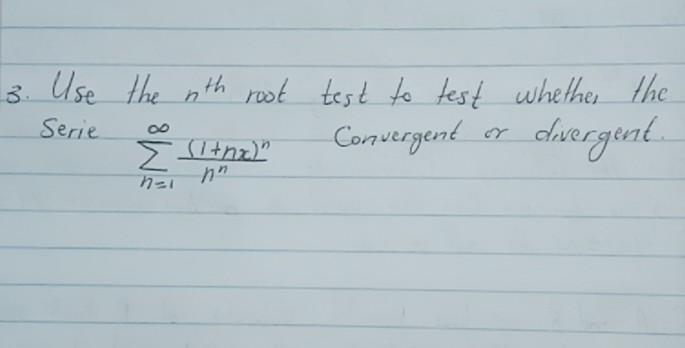 3. Use the nth root test to test whether the
Serie ∞ Σ n=1 (1+nx)^n / n^n Convergent or divergent.